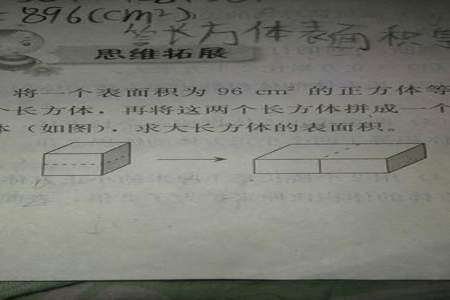 896(cm²)
长方体表面积
思维拓展
将一个表面积为 96 cm² 的正方体等
个长方体,再将这两个长方体拼成一个
体(如图),求大长方体的表面积。